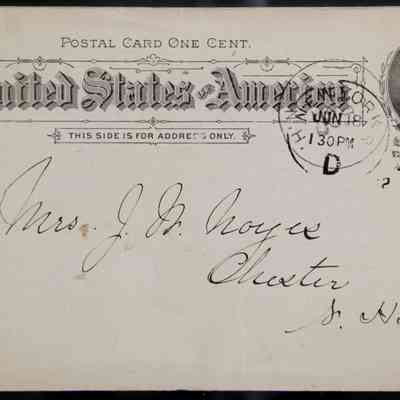 POSTAL CARD ONE CENT.
United States of America
THIS SIDE IS FOR ADDRESS ONLY.
NEW YORK
JUN 18
130PM
D
Mrs. J. W. Noyes
Chester
N. H.